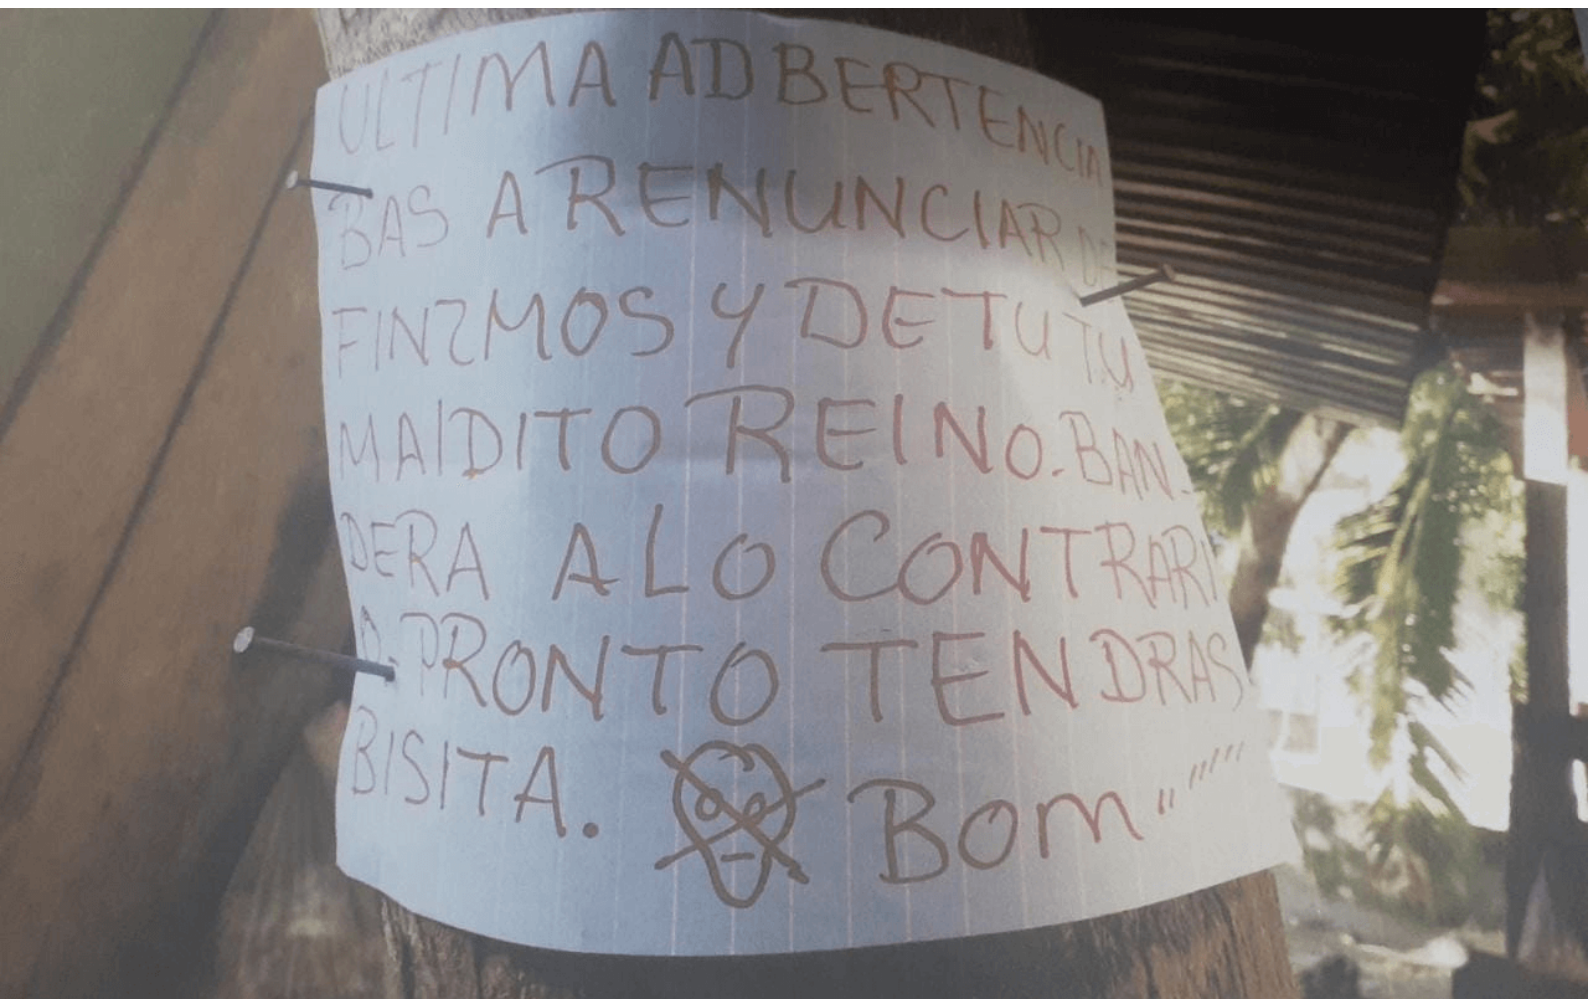 ULTIMA ADBERTENCIA
BAS A RENUNCIAR DE
FINZMOS Y DE TU TU
MALDITO REINO. BAN-
DERA A LO CONTRARI
O. PRONTO TENDRAS
BISITA. BOM """